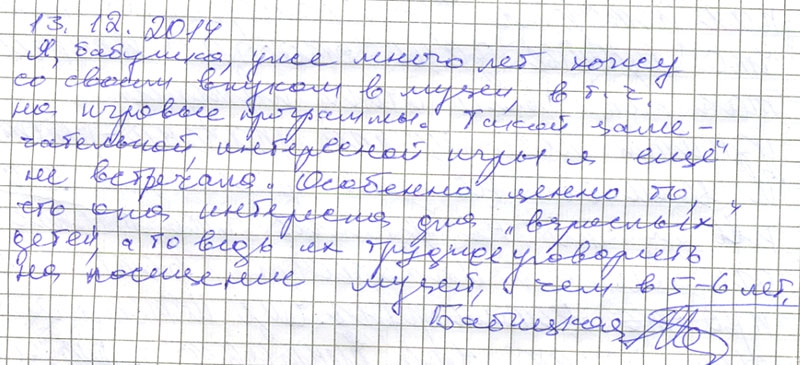 13.12.2014
Я, бабушка, уже много лет хожу
со своим внуком в музеи, в т.ч.
на игровые программы. Такой заме-
чательной, интересной игры я ещё
не встречала. Особенно ценно то,
что она интересна для „взрослых“
детей, а то ведь их труднее уговорить
на посещение музей, чем в 5-6 лет.
Бабицкая